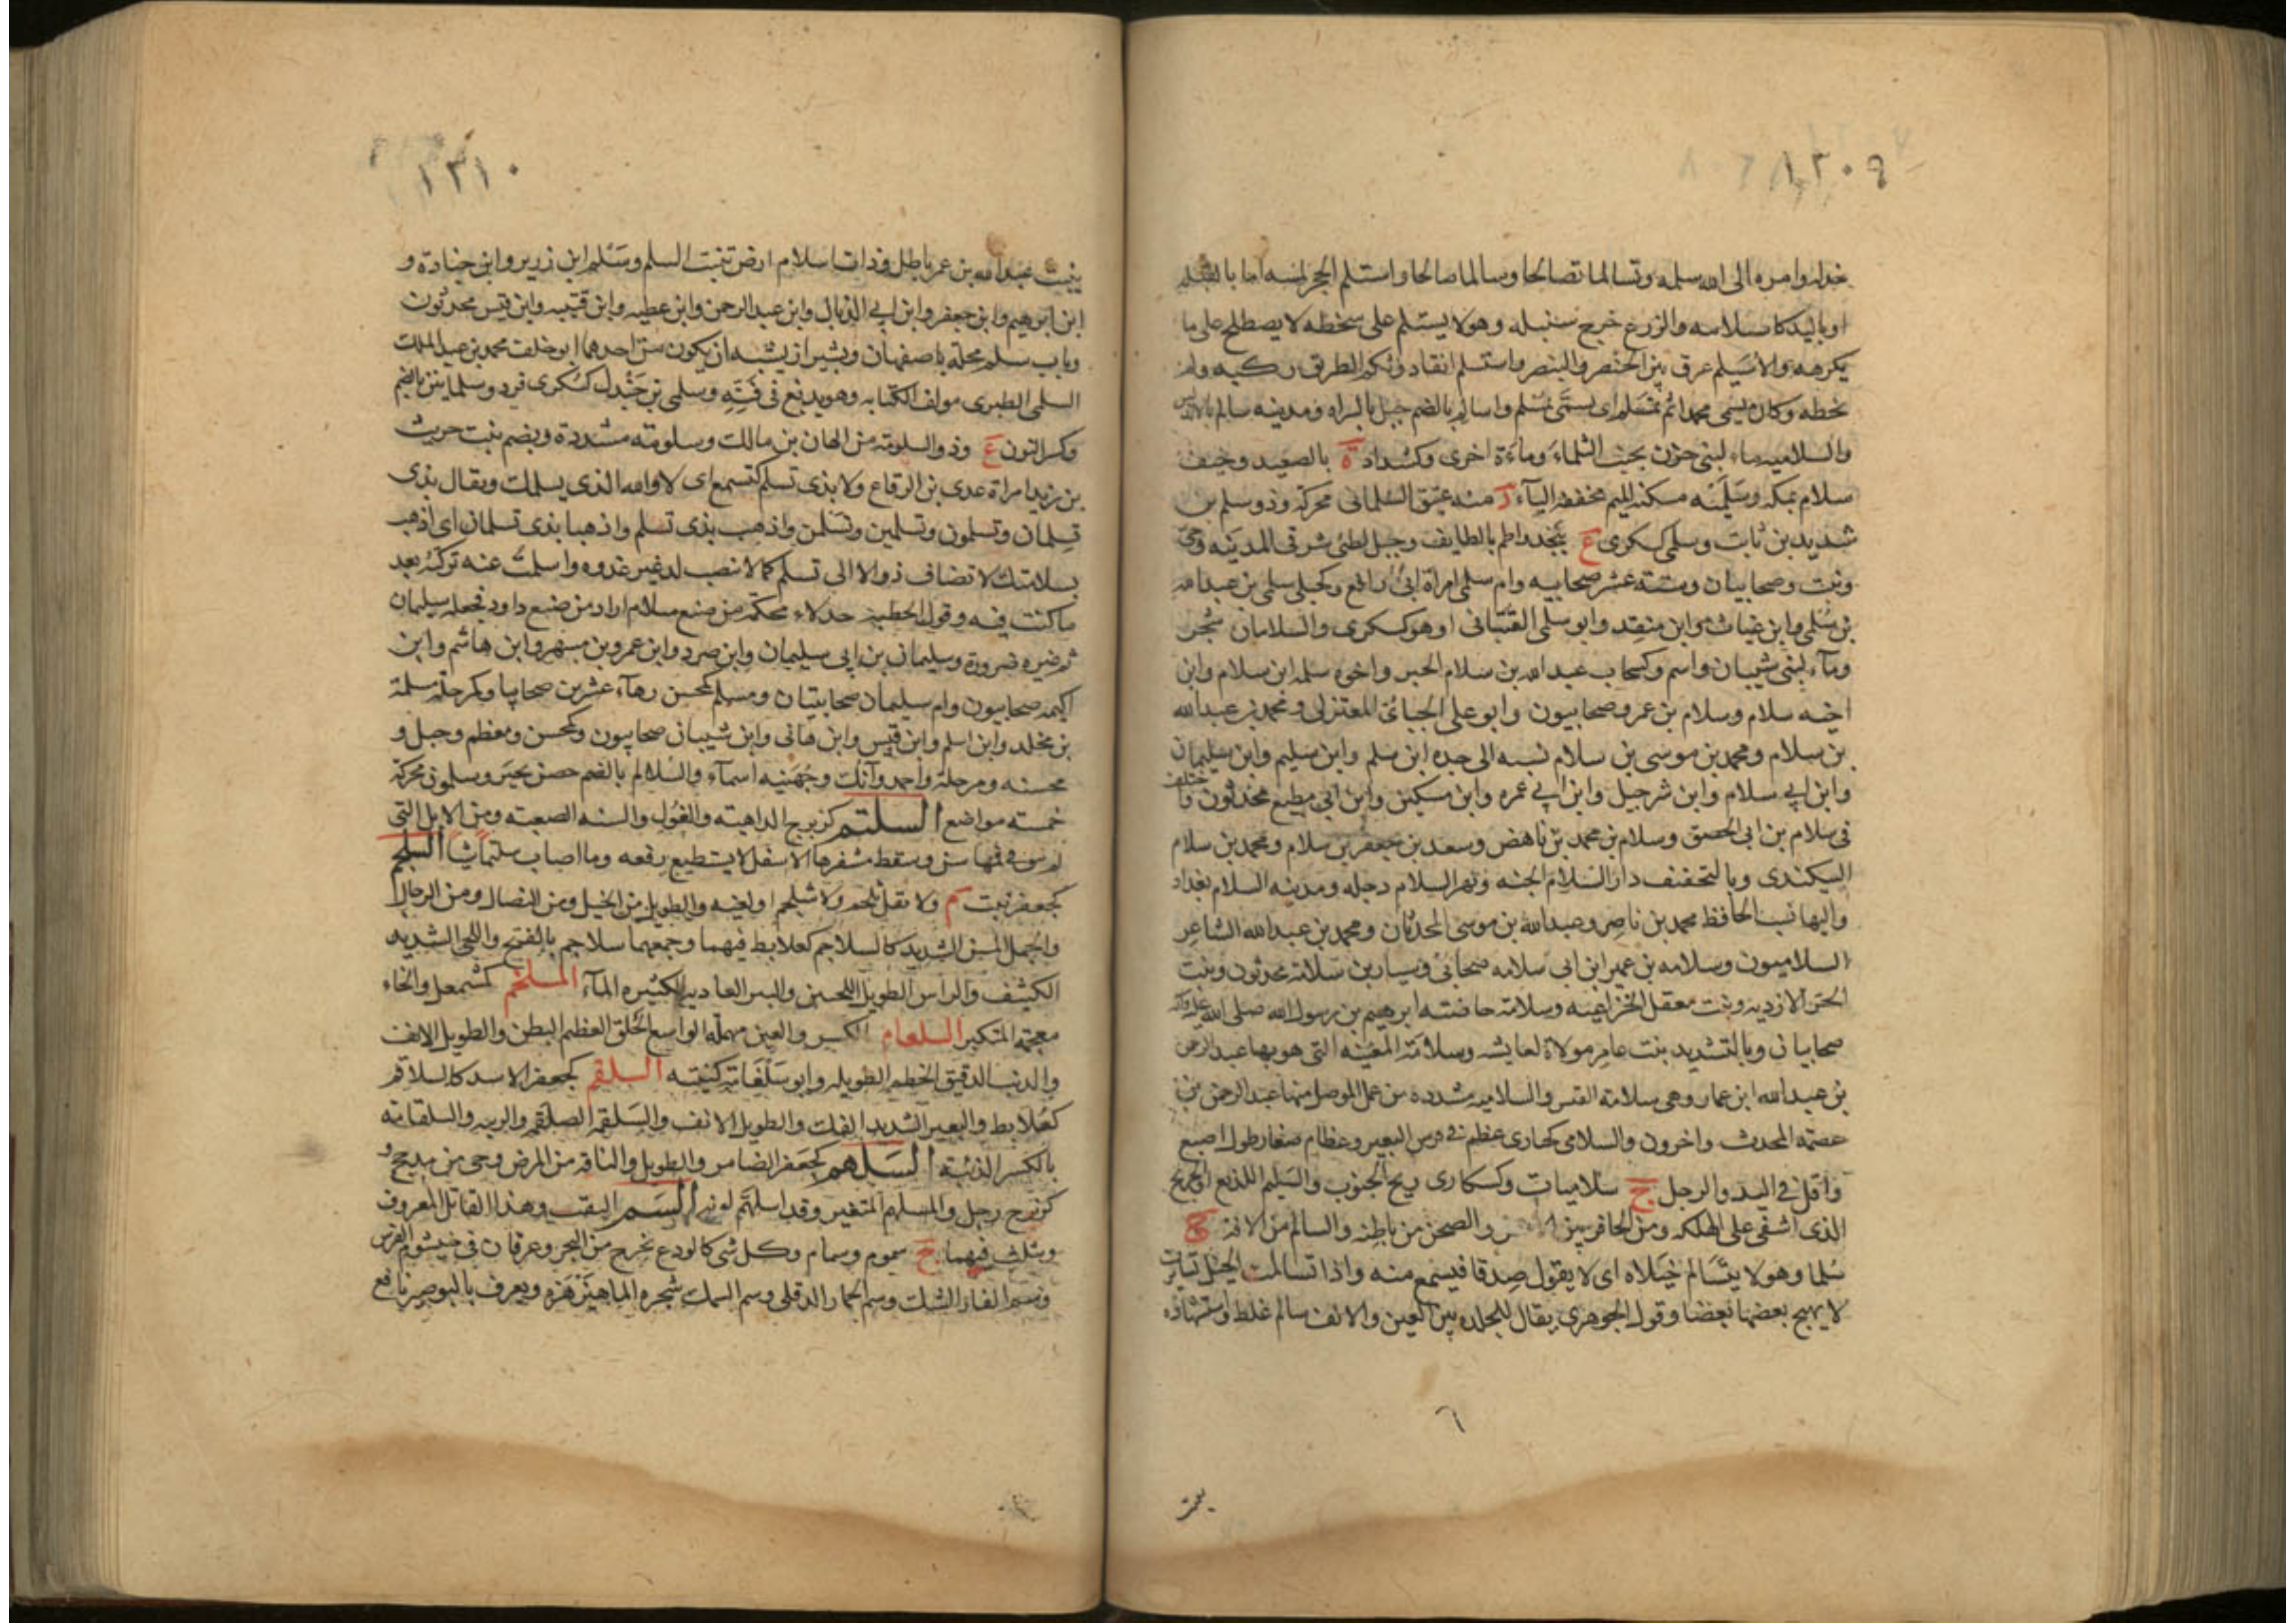 ١٢٠٩
خذله وامره الى الله سلمه وتسالما تصالحا وسالما صالحا واستلم الحجر لمسه اما بالقبله
اوباليد كاستلامه والزرع خرج سنبله وهو لا يستلم على سخطه لا يصطلح على ما
يكرهه والاسيلم عرق بين الخنصر والبنصر واستسلم انقاد وثكم الطريق ركبه ولم
يخطه وكان يسمى محمدا ثم تمسلم اى تسمى بمسلم واسالم بالضم جبل بالسراه ومدينه سالم بالاندلس
والسلاميه ماء لبنى حزن بجنب الثلماء وماءة اخرى وكشداد ة بالصعيد وخيف
سلام بمكه وسلمنه مسكنه الميم مخففه الياء د منه عتيق السلمانى محركه وذو سلم بن
شديد بن ثابت وسلمى كسكرى ع بنجد واطم بالطايف وجبل لطئ شرقى المدينه وحى
ونبت وصحابيان وستة عشر صحابيه وام سلمى امراة ابى رافع وكحبلى سلمى بن عبدالله
بن سلمى وابن غياث وابن منقد وابو سلمى القتبانى او هو كسكرى والسلامان شجر
وماء لبنى شيبان واسم وكسحاب عبد الله بن سلام الحبر واخوه سلمه ابن سلام وابن
اخيه سلام وسلام بن عمرو صحابيون وابو على الجبائى المعتزلى ومحمد بن عبدالله
بن سلام ومحمد بن موسى بن سلام نسبه الى جده ابن سلم وابن سليم وابن سليمان
وابن ابى سلام وابن شرحبيل وابن ابى عمره وابن مسكين وابن ابى مطيع محدثون واختلف
فى سلام بن ابى الحقيق وسلام بن محمد بن ناهض وسعد بن جعفر بن سلام ومحمد بن سلام
البيكندى وبالتخفيف دار السلام الجنه ونهر السلام دجله ومدينه السلام بغداد
واليها نسب الحافظ محمد بن ناصر وعبدالله بن موسى المحدثان ومحمد بن عبدالله الشاعر
السلاميون وسلامه بن عمير ابن ابى سلامه صحابى وسيار بن سلامة محدثون وبنت
الحر الازديه وبنت معقل الخزاعيه وسلامة حاضنه ابرهيم بن رسول الله صلى الله عليه واله
صحابيان وبالتشديد بنت عامر مولاة لعايشه وسلامة المغنيه التى هويها عبد الرحمن
بن عبدالله ابن عمار وهى سلامة القس والسلاميه مشدده من عمل الموصل منها عبدالرحمن بن
عصمه المحدث واخرون والسلامى كحبارى عظم فى فرسن البعير وعظام صغار طول اصبع
واقل فى اليد والرجل ج سلاميات وكسكارى ريح الجنوب والسليم اللديغ او الجريح
الذى اشفى على الهلكه ومن الحافر بين والصحن من باطنه والسالم من الافة ج
سلما وهو لا يتسالم خيلاه اى لا يقول صدقا فيسمع منه واذا تسالمت الخيل تسايرت
لا يهيج بعضها بعضا وقول الجوهرى يقال للجلده بين العين والانف سالم غلط واستشهاده
٦
ببيت
١٢١٠
ببيت عبدالله بن عمر باطل وذات اسلام ارض تنبت السلم وسلم ابن زرير وابن جنادة و
ابن ابرهيم وابن جعفر وابن ابى الذيال وابن عبد الرحمن وابن عطيه وابن قتيبه وابن قيس محدثون
وباب سلم محله باصفهان وبشيراز يشبه ان يكون من احدهما ابو خلف محمد بن عبد الملك
السلمى الطبرى مولف الكتابه وهو بديع فى فنه وسلمى بن جندل كسكرى فرد وسلمانين بالضم
وكسر النون ع وذو السلومه من الهان بن مالك وسلومه مشددة وبضم بنت حريث
بن زيد امراة عدى بن الرقاع ولا بذى تسلم كتسمع اى لا والله الذى يسلمك ويقال بذى
تسلمان وتسلمون وتسلمين وتسلمن واذهب بذى تسلم واذهبا بذى تسلمان اى اذهب
بسلامتك لا تضاف ذو الا الى تسلم كما لا تنصب لدن غير غدوه واسلمت عنه تركته بعد
ماكنت فيه وقول الحطيئه جدلاء محكمة من صنع سلام اراد من صنع داود فجعله سليمان
ثم غيره ضرورة وسليمان بن ابى سليمان وابن صرد وابن عمرو بن مسهر وابن هاشم وابن
اكيمه صحابيون وام سليمان صحابيتان ومسلم كمحسن زهاء عشرين صحابيا وكمرحلة مسلمة
بن مخلد وابن اسلم وابن قيس وابن هانى وابن شيبان صحابيون وكمحسن ومعظم وجبل و
محسنه ومرحلة واحمد وآنك وجهينه اسماء والسلالم بالضم حصن بخيبر وسلمون محركة
خمسه مواضع السلتم كزبرج الداهيه والغول والسنه الصعبه ومن الابل التى
لم يبق فى فمها سن وسقط مشفرها الاسفل لا يستطيع رفعه وما اصاب سلتما شيا السلجم
كجعفر نبت م ولا تقل ثلجم ولا شلجم او لغيه والطويل من الخيل ومن النصال ومن الرجال
والجمل المسن الشديد كالسلاجم كعلابط فيهما وجمعهما سلاجم بالفتح واللحى الشديد
الكثيف والراس الطويل اللحيين والبير العاديه الكثيره الماء المسلخم كمشمعل والخاء
معجمه المتكبر السلعام الكسر والعين مهمله الواسع الخلق العظيم البطن والطويل الانف
والذئب الدقيق الخطم الطويله وابو سلعامة كنيته السلقم كجعفر الاسد كالسلاقم
كعلابط والبعير الشديد الفك والطويل الانف والسلقمه الصلقمه والريبه والسلقامه
بالكسر الذئبه السلهم كجعفر الضامر والطويل والناقه من المرض وحى من مذحج و
كزبرج رجل والمسلهم المتغير وقد اسلهم لونه السم الثقب وهذا القاتل المعروف
ويثلث فيهما ج سموم وسمام وكل شى كالودع يخرج من البحر وعرقان فى خيشوم الفرس
وسم الفار الشك وسم الحمار الدفلى وسم السمك شجره الماهيزهره ويعرف بالبوصير نافع